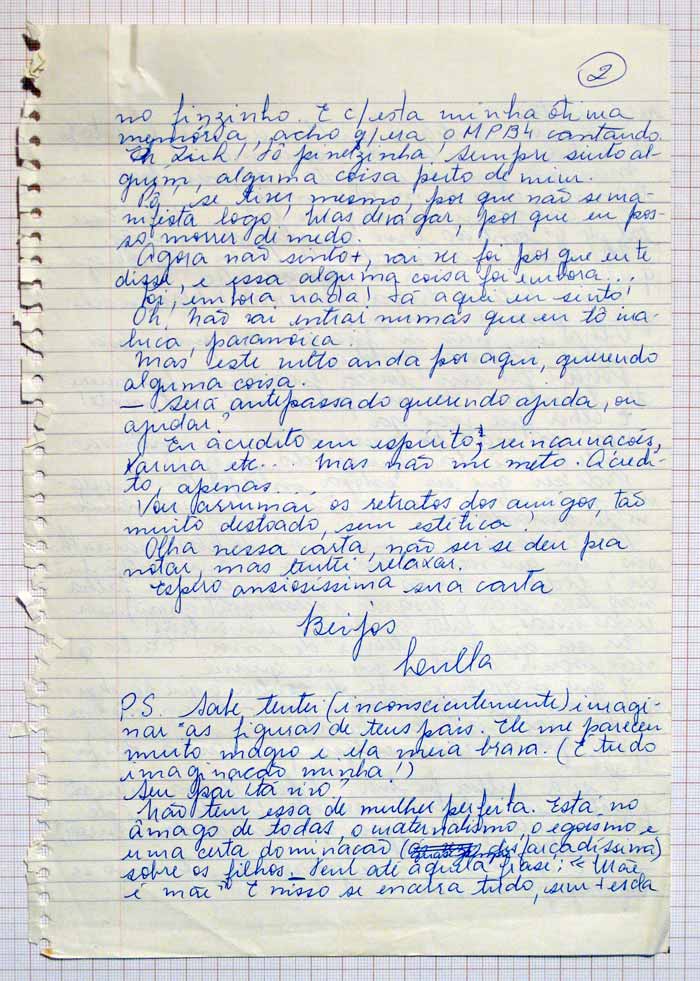 2
no finzinho. E c/esta minha ótima
memória, acho q/era o MPB4 cantando.
Eh Zuk! Tô pinelzinha! Sempre sinto al-
guém, alguma coisa perto de mim.
Pô, se tiver mesmo, por que não se ma-
nifesta logo! Mas devagar, por que eu pos-
so morrer de medo.
Agora não sinto+, vai ver foi por que eu te
disse, e essa alguma coisa foi embora...
Foi, embora nada! Tá aqui eu sinto!
Oh! Não vai entrar numas que eu tô ma-
luca, paranoica!
Mas este vulto anda por aqui, querendo
alguma coisa.
— Será antepassado querendo ajuda, ou
ajudar?
Eu acredito em espírito, reincarnações,
karma etc... Mas não me meto. Acredi-
to, apenas...
Vou arrumar os retratos dos amigos, tão
muito destoado, sem estética!
Olha nessa carta, não sei se deu pra
notar, mas tentei relaxar.
Espero ansiosíssima sua carta
Beijos
P.S. Sabe tentei (inconscientemente) imagi-
nar as figuras de teus pais. Ele me pareceu
muito magro e ela meia brava. (É tudo
imaginação minha!)
Seu pai tá vivo?
Não tem essa de mulher perfeita. Está no
âmago de todas, o maternalismo, o egoísmo e
uma certa dominação (disfarçadíssima)
sobre os filhos. Tem até aquela frase: "Mãe
é mãe" E nisso se encerra tudo, sem + escla